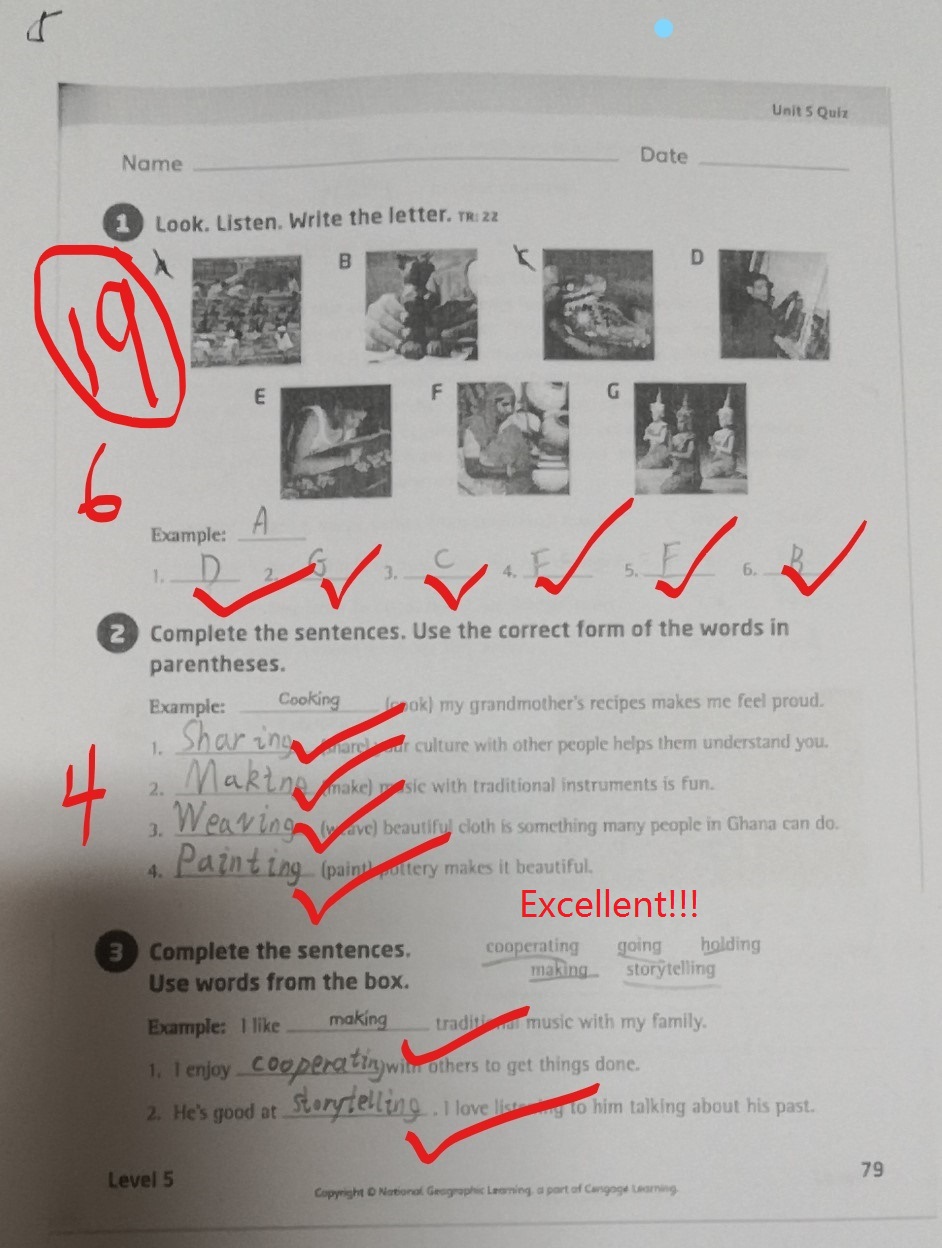 Unit 5 Quiz
Name Date
1 Look. Listen. Write the letter. TR: 22
A B C D
19
E F G
6
Example: A
1. D 2. G 3. C 4. E 5. F 6. B
2 Complete the sentences. Use the correct form of the words in
parentheses.
Example: Cooking (cook) my grandmother's recipes makes me feel proud.
1. Sharing (share) your culture with other people helps them understand you.
4
2. Making (make) music with traditional instruments is fun.
3. Weaving (weave) beautiful cloth is something many people in Ghana can do.
4. Painting (paint) pottery makes it beautiful.
Excellent!!!
3 Complete the sentences.
Use words from the box.
cooperating going holding
making storytelling
Example: I like making traditional music with my family.
1. I enjoy cooperating with others to get things done.
2. He's good at storytelling. I love listening to him talking about his past.
Level 5
79
Copyright © National Geographic Learning, a part of Cengage Learning.